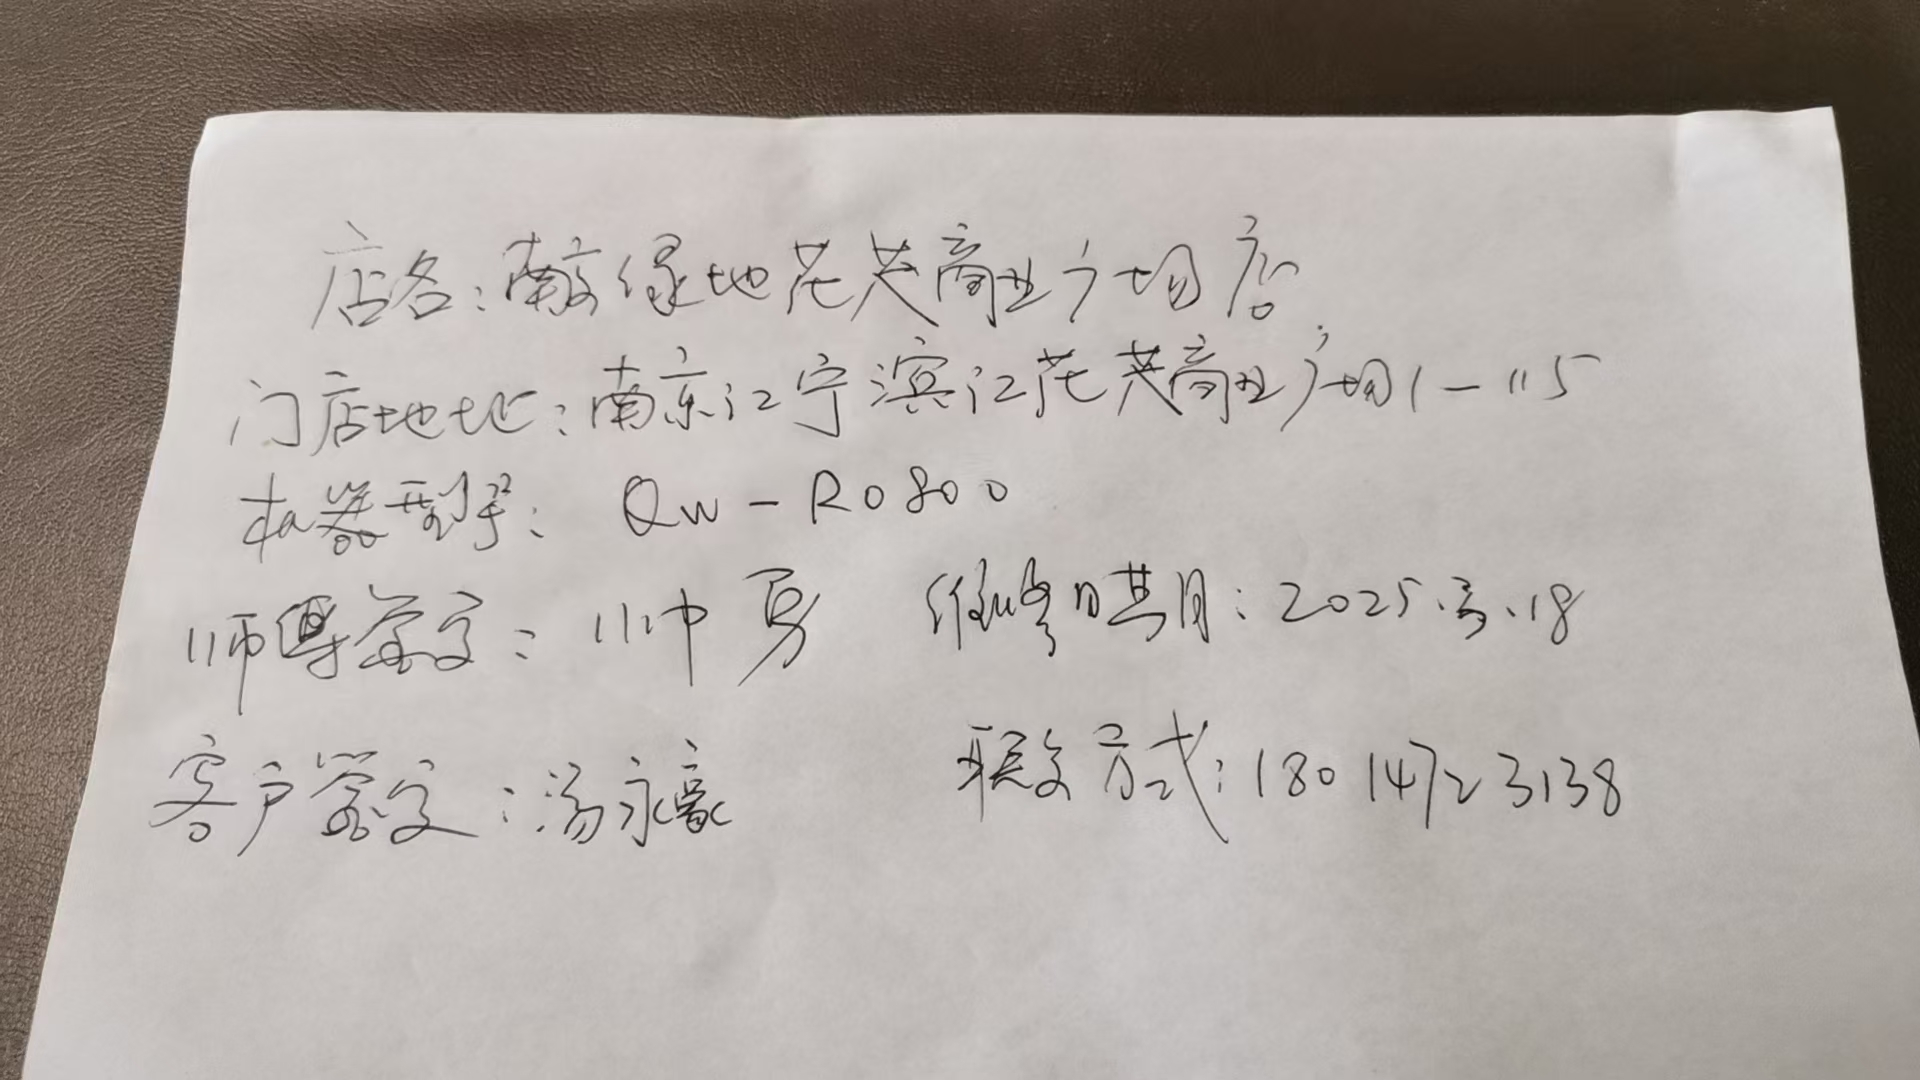 店名：南京绿地花芙商业广场店
门店地址：南京江宁滨江花芙商业广场1-115
机器型号：QW-R0800
师傅签字：帅勇 维修日期：2025.3.18
客户签字：汤永豪 联系方式：18014723138